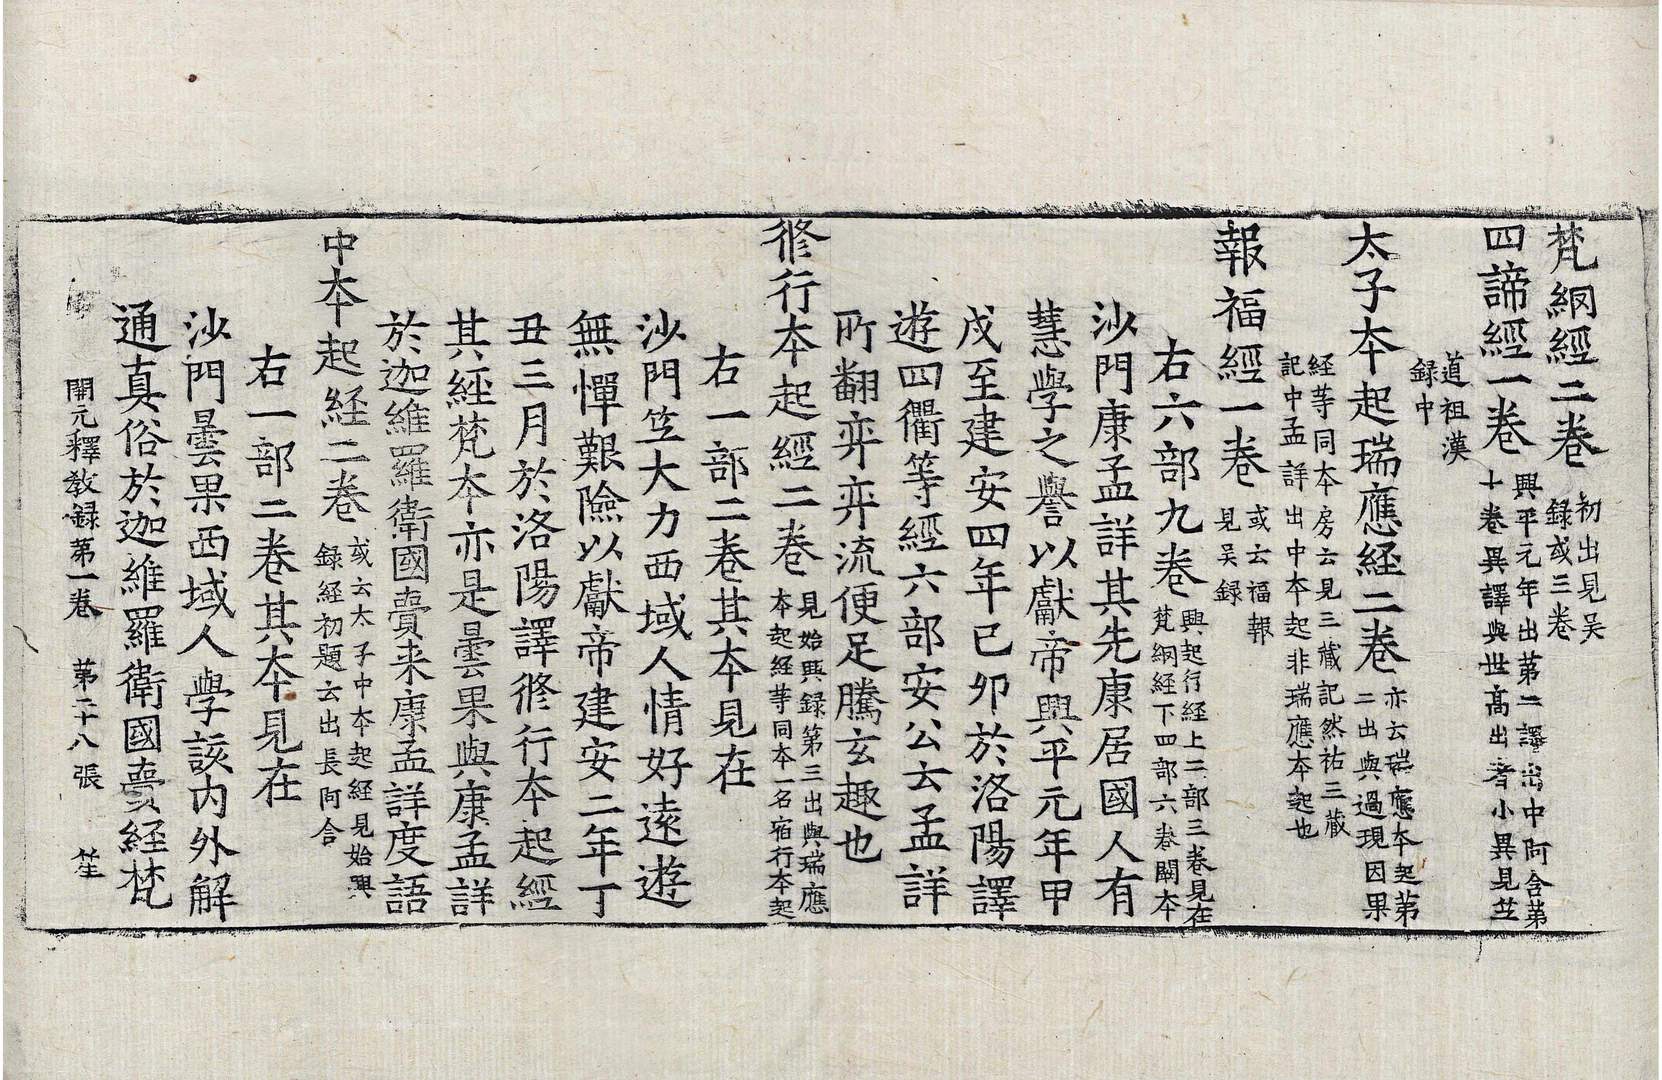 梵網經二卷 初出見吳
録或三卷
四諦經一卷 興平元年出第二譯出中阿含第
十卷異譯與世髙出者小異見竺
道祖漢
録中
太子本起瑞應経二卷 亦云瑞應本起第
二出與過現因果
経䓁同本房云見三藏記然祐三藏
記中孟詳出中本起非瑞應本起也
報福經一卷 或云福報
見吴録
右六部九卷 興起行経上二部三卷見在
梵網経下四部六卷闕本
沙門康孟詳其先康居國人有
慧學之譽以獻帝興平元年甲
戌至建安四年己夘於洛陽譯
遊四衢等經六部安公云孟詳
所翻弈弈流便足騰玄趣也
修行本起經二卷 見始興録第三出與瑞應
本起経䓁同本一名宿行本起
右一部二卷其本見在
沙門竺大力西域人情好遠遊
無憚艱險以獻帝建安二年丁
丑三月於洛陽譯修行本起經
其経梵本亦是曇果與康孟詳
於迦維羅衛國賷来康孟詳度語
中本起経二卷 或云太子中本起経見始興
録経初題云出長阿含
右一部二卷其本見在
沙門曇果西域人學該内外解
通真俗於迦維羅衛國賷経梵
開元釋教録第一卷 第二十八張 笙